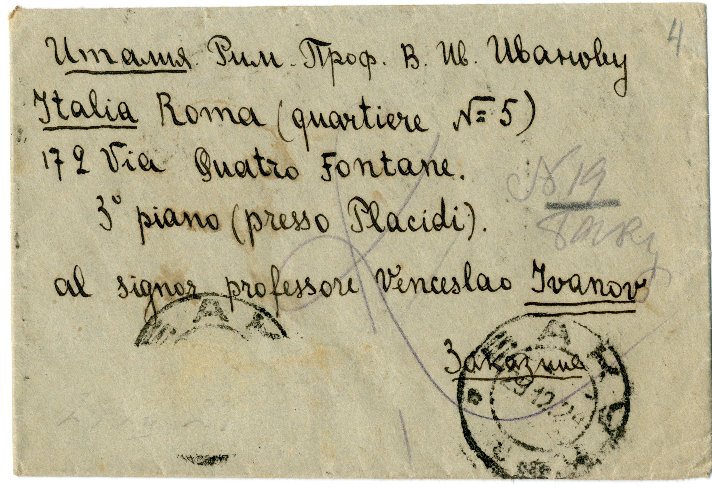 4
Италия. Рим. Проф. В. Ив. Иванову
Italia Roma (quartiere № 5)
172 Via Quatro Fontane.
3° piano (presso Placidi).
al signor professore Venceslao Ivanov
Заказное
N 19
Баку